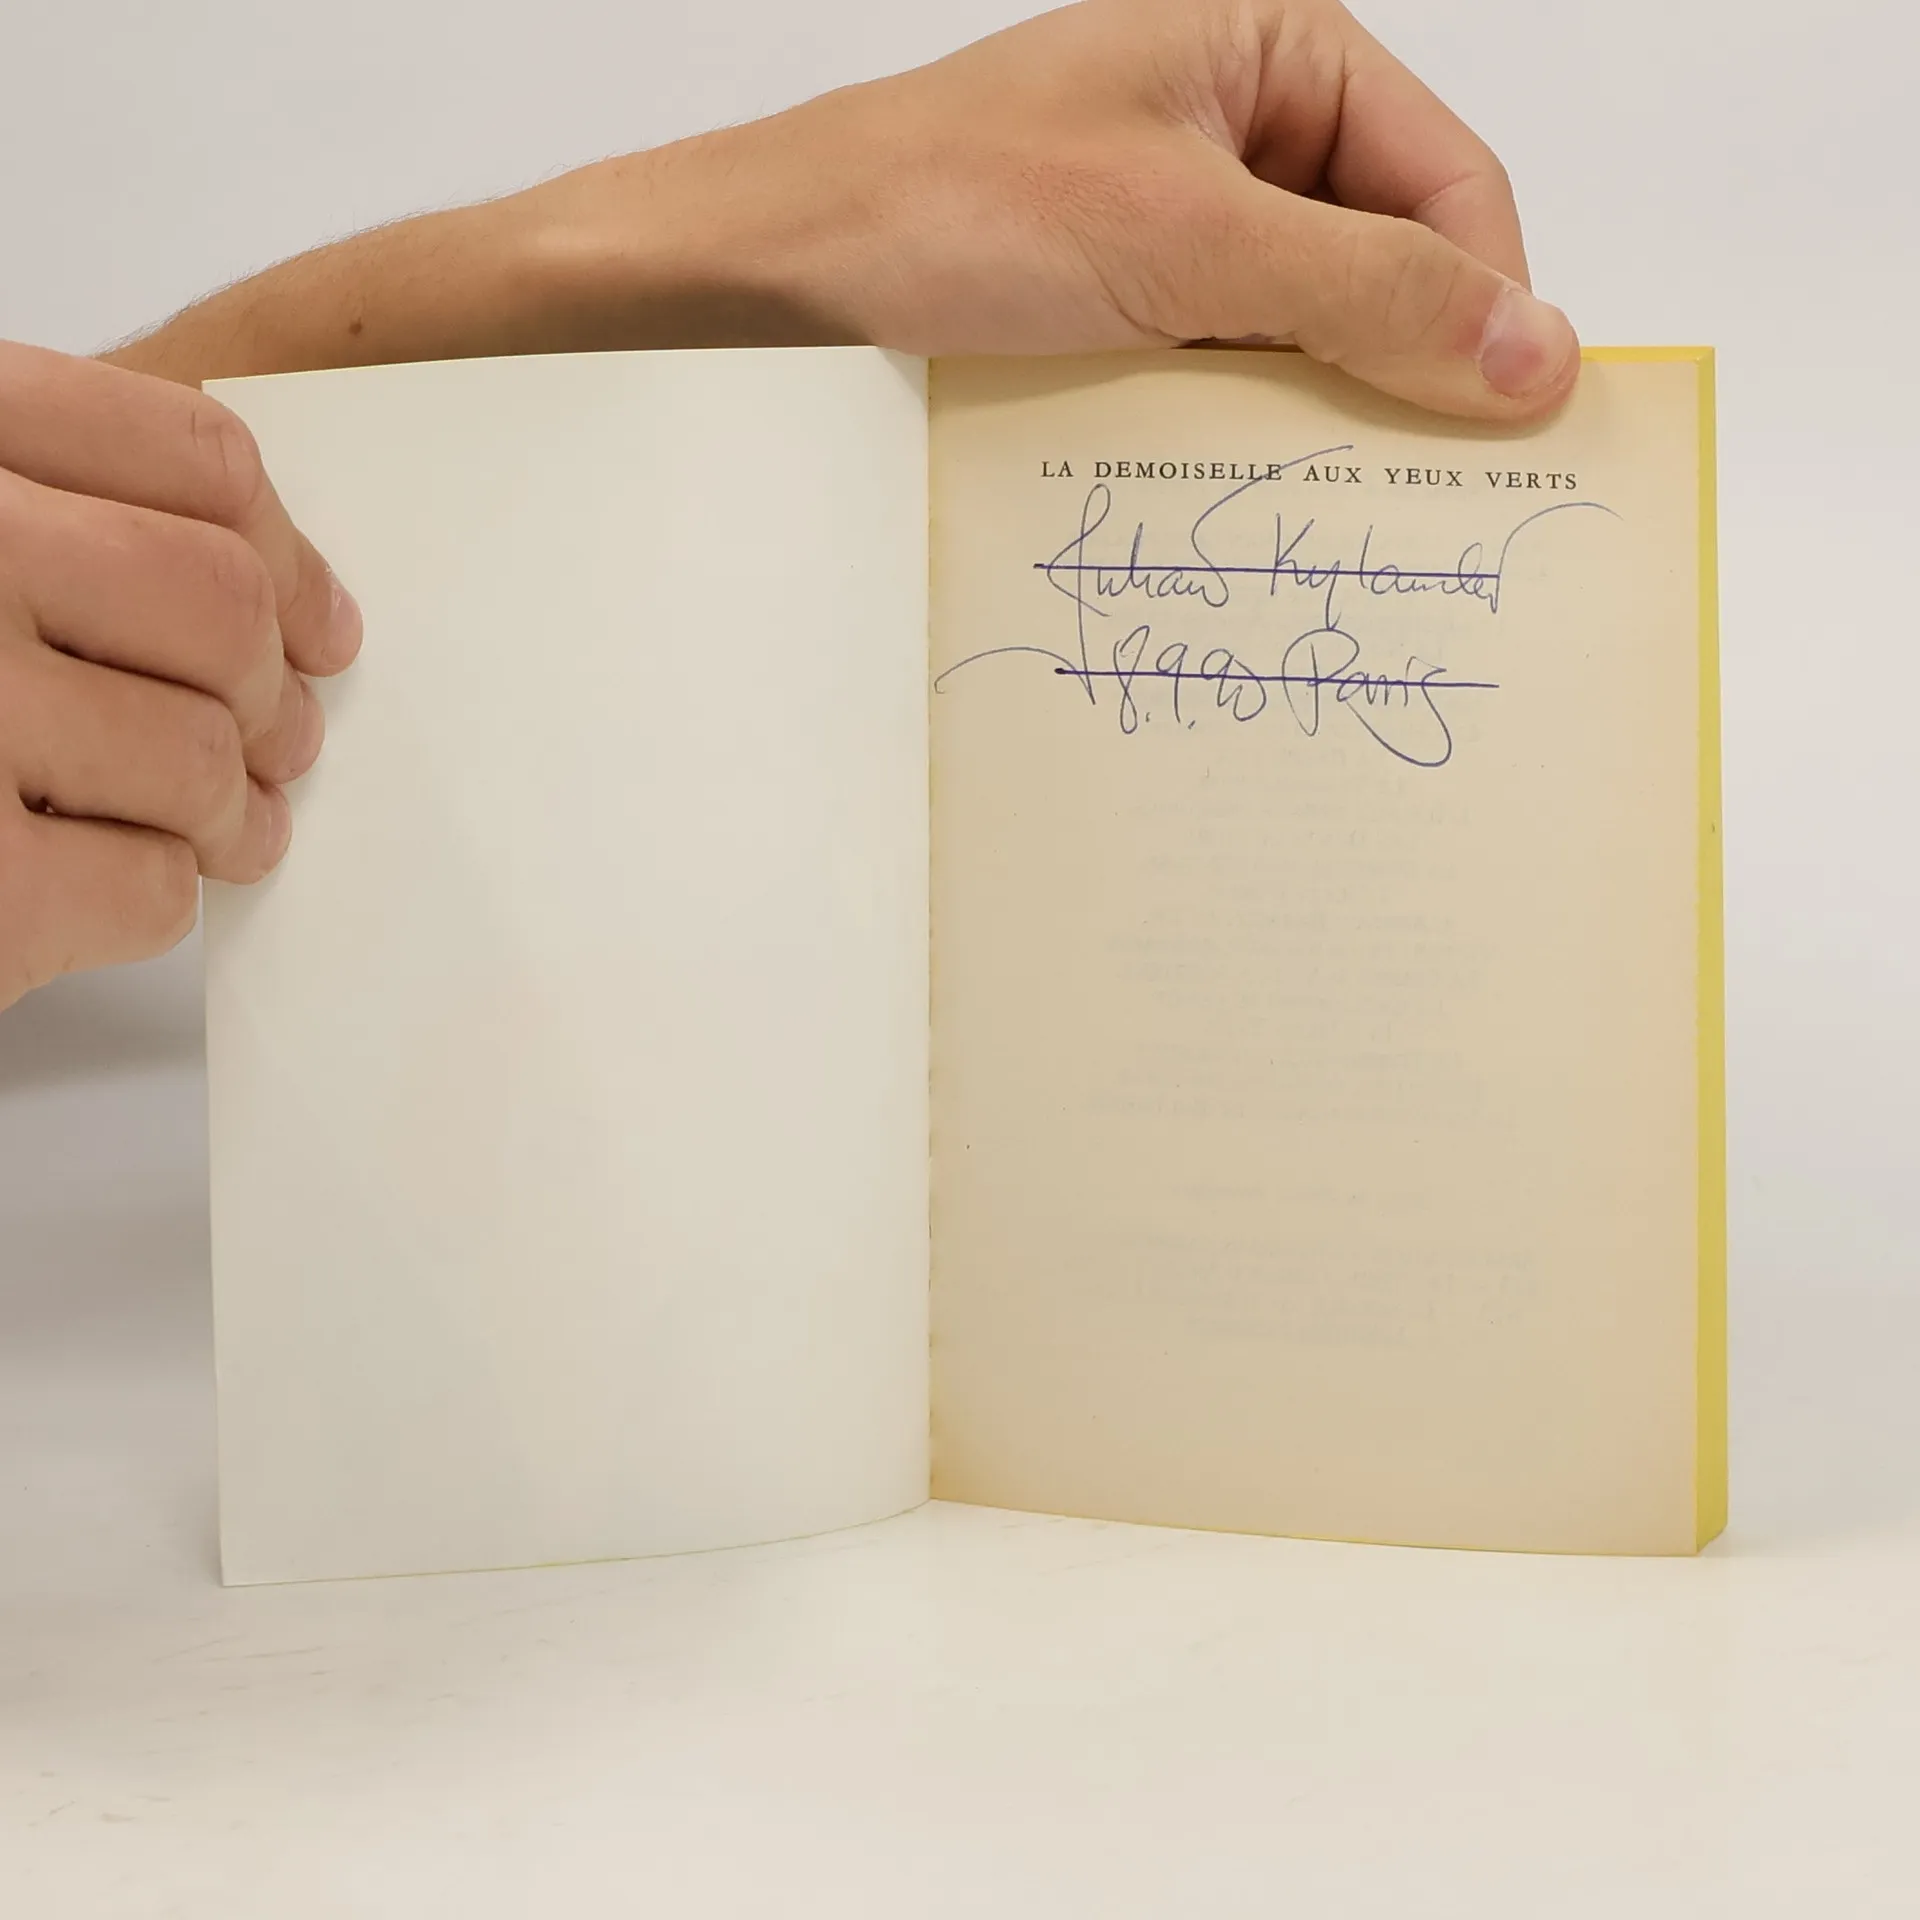 LA DEMOISELLE AUX YEUX VERTS
Juhani Kylander
18.9.90 Paris